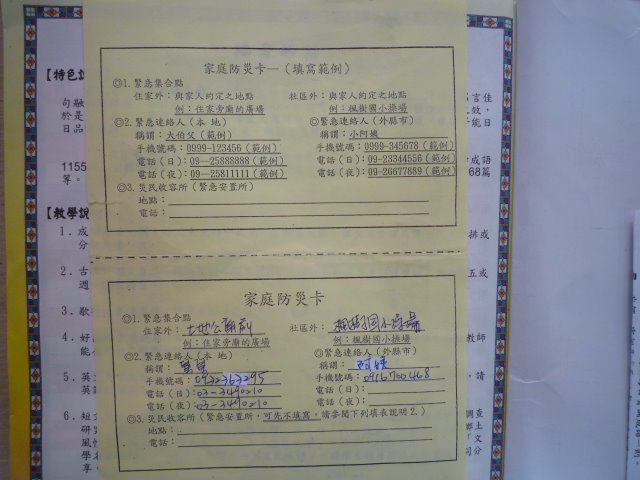 家庭防災卡—(填寫範例)
◎1. 緊急集合點
住家外:與家人約定之地點 社區外:與家人約定之地點
例:住家旁廟的廣場 例:楓樹國小操場
◎2. 緊急連絡人(本 地) ◎緊急連絡人(外縣市)
稱謂:大伯父(範例) 稱謂:小阿姨
手機號碼:0999-123456(範例) 手機號碼:0999-345678(範例)
電話(日):09-25888888(範例) 電話(日):09-23344556(範例)
電話(夜):09-25811111(範例) 電話(夜):09-26677889(範例)
◎3. 災民收容所(緊急安置所)
地點:
電話:
家庭防災卡
◎1. 緊急集合點
住家外:土地公廟前 社區外:楓樹國小操場
例:住家旁廟的廣場 例:楓樹國小操場
◎2. 緊急連絡人(本 地) ◎緊急連絡人(外縣市)
稱謂: 稱謂:阿姨
手機號碼:0932363295 手機號碼:0916900468
電話(日):03-3490210 電話(日):
電話(夜):03-3490210 電話(夜):
◎3. 災民收容所(緊急安置所,可先不填寫,請參閱下列填表說明2.)
地點:
電話:
【特色
句融
於是
日品
1155
等。
【教學說
1. 成
分
2. 古
週
3. 歇
4. 好
能
5. 英
英
6. 短
研
風
學
享
言佳
效,
能日
成語
68篇
排或
五或
教師
請
調查
鄉土
「文
司分